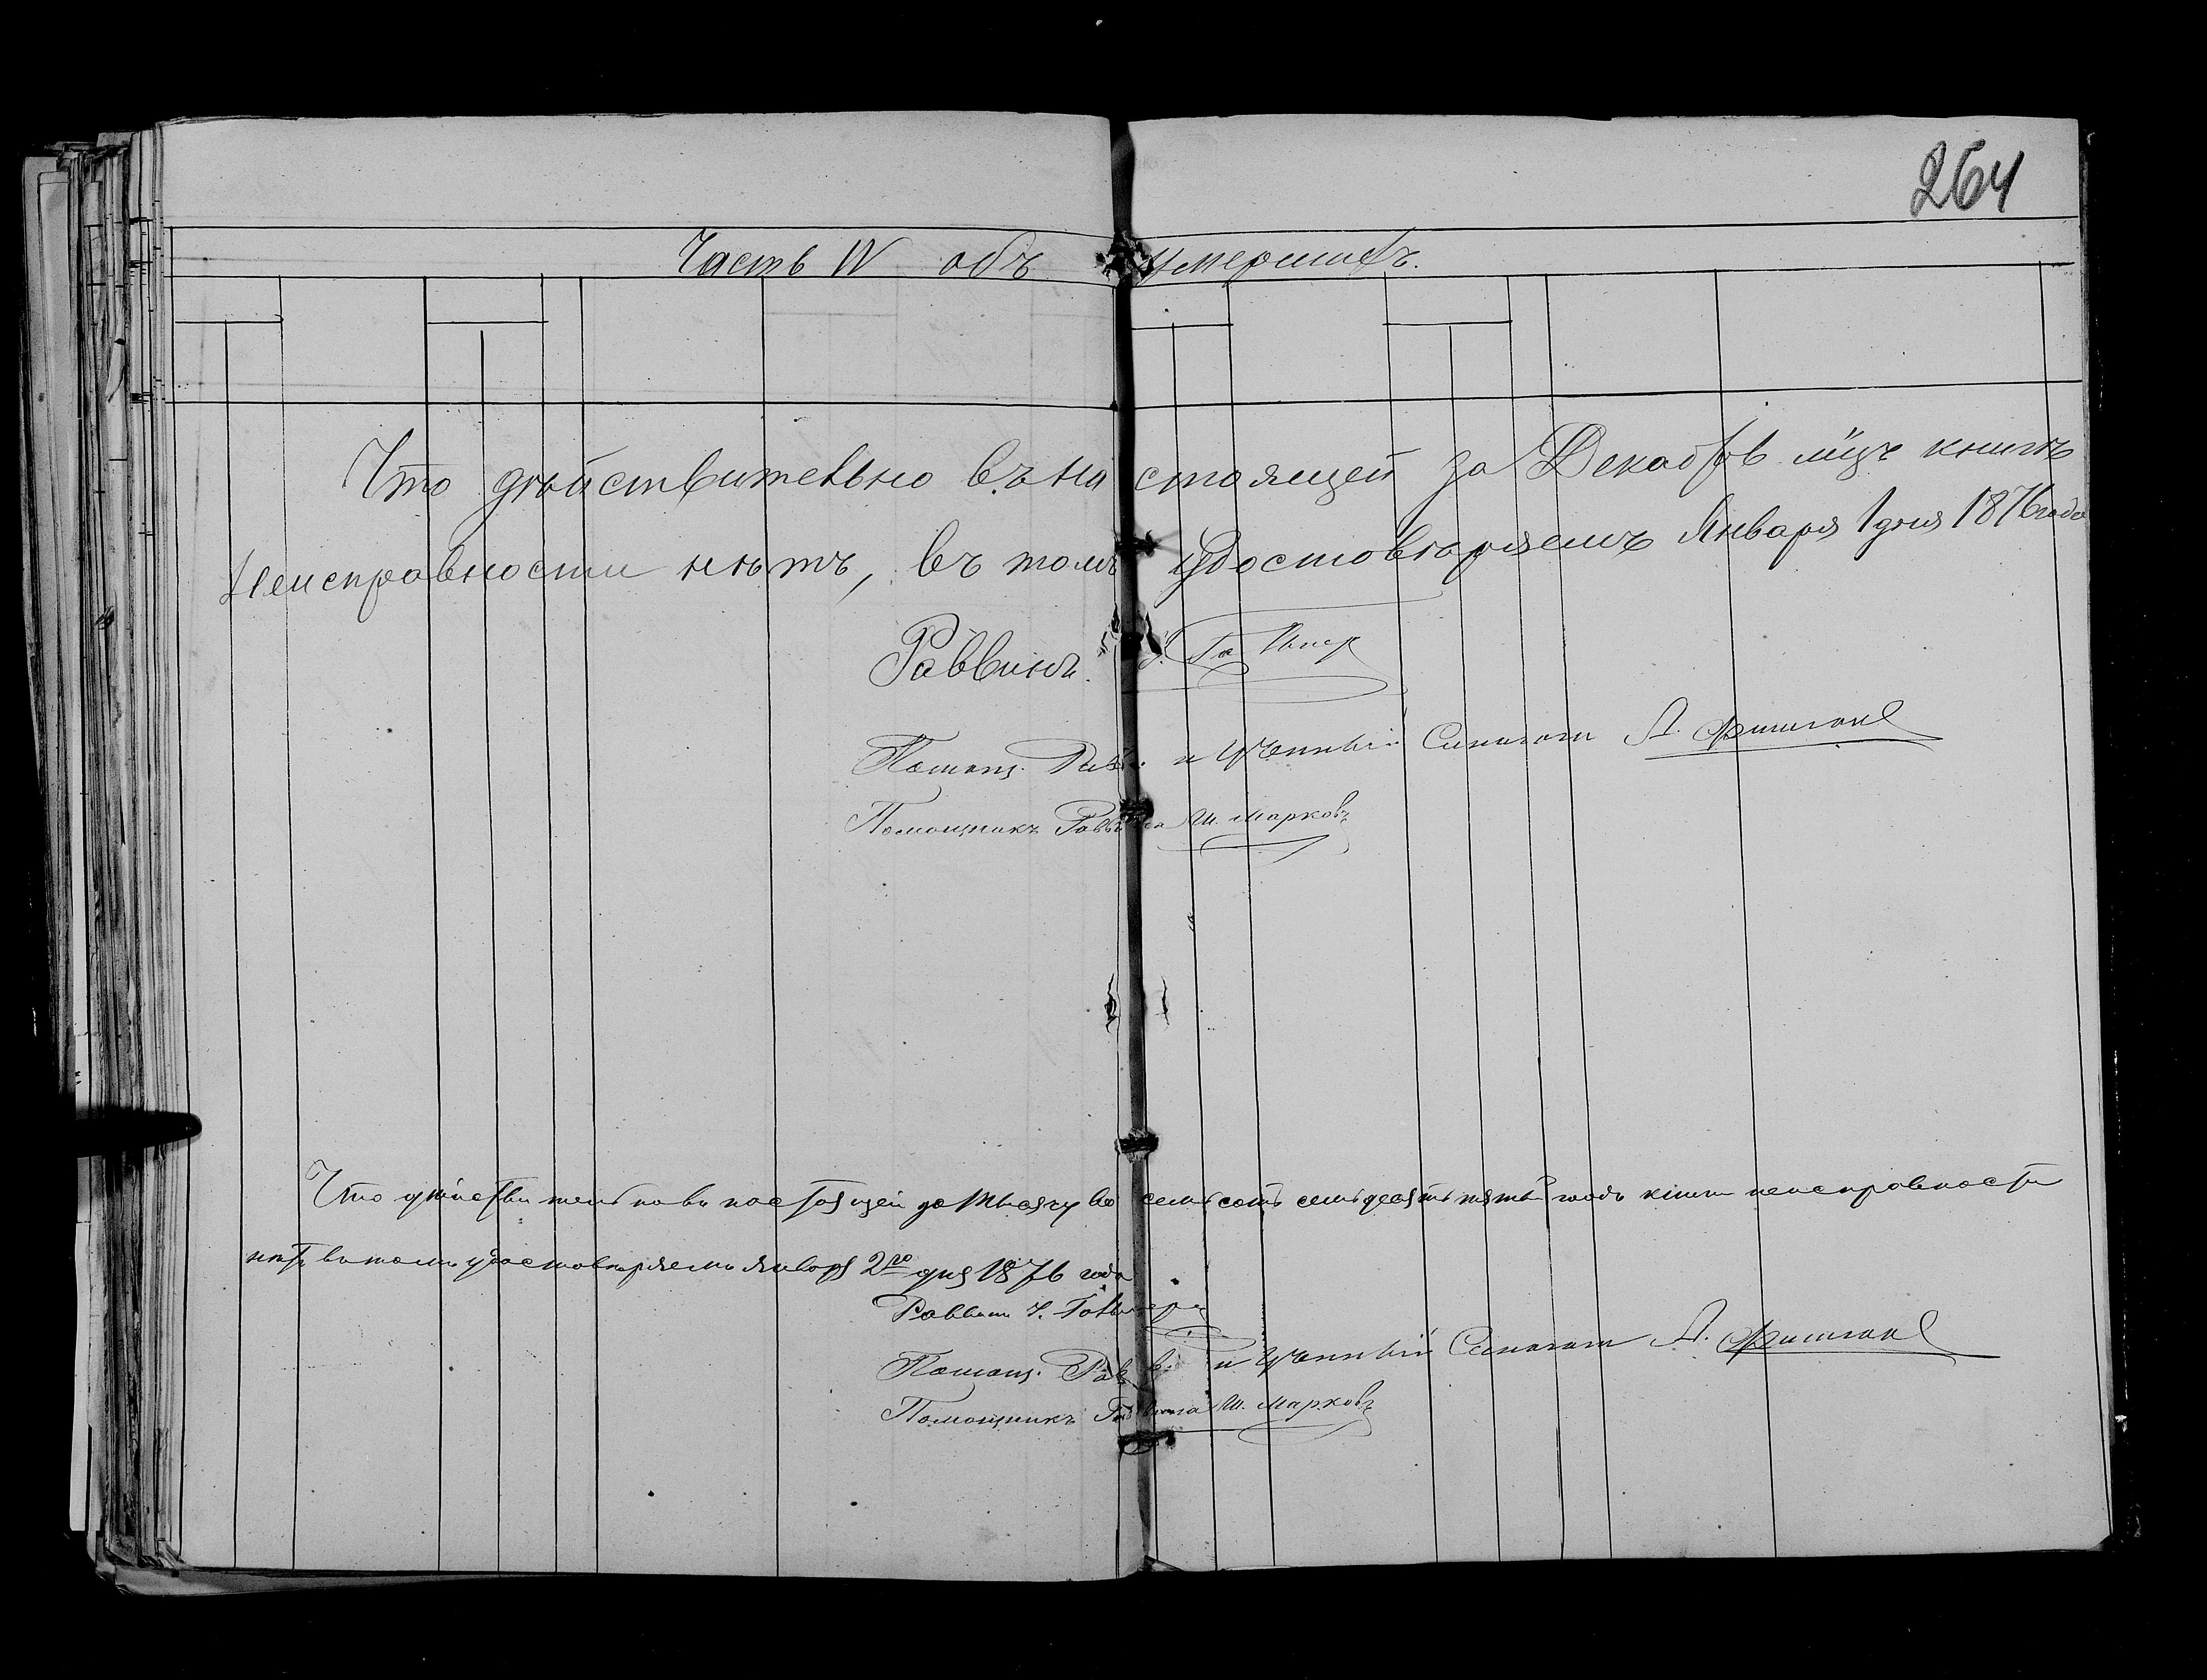 264
Часть IV объ умершихъ.
Что дѣйствительно въ настоящей за Декабрь м͠цъ книгѣ
неисправности нѣтъ, въ томъ удостовѣряемъ Января 1 дня 1876 года
Раввинъ
Помощ. Рав. и Ученный Синагоги А.
Помощникъ Раввина Ш. Марковъ
Что дѣйствительно въ настоящей за тысячу восемьсотъ семьдесятъ пятый годъ книги неисправности
нѣтъ въ томъ удостовѣряемъ Января 2го дня 1876 года
Раввинъ
Помощ. Рав. и Ученный Синагоги А.
Помощникъ Раввина Ш. Марковъ